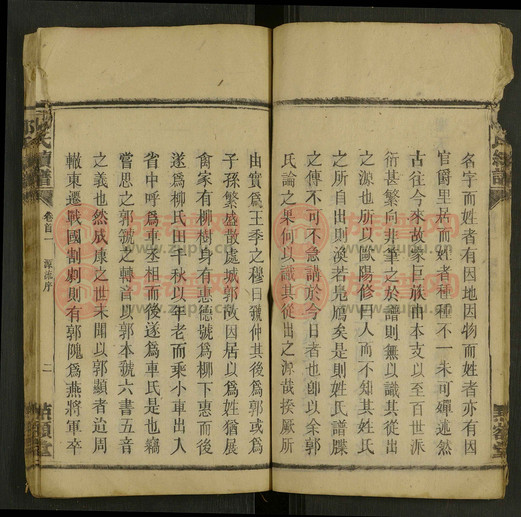 名字而姓者有因地因物而姓者亦有因
官爵里居而姓者種種不一未可殫述然
古往今來故家巨族由本支以至百世派
衍甚繁向非筆之於譜則無以識其從出
之源也所以歐陽修曰人而不知其姓氏
之所自出則渙若鳧鴈矣是則姓氏譜牒
之傳不可不急講於今日者也卽以余郭
氏論之果何以識其從出之源哉揆厥所
由實爲王季之穆曰虢仲其後爲郭或爲
子孫繁盛散處城郭故因居以爲姓猶展
禽家有柳樹身有惠德號爲柳下惠而後
遂爲柳氏田千秋以年老而乘小車出入
省中呼爲車丞相而後遂爲車氏是也竊
嘗思之郭虢之轉音以郭本號六書五音
之義也然成康之世未聞以郭顯者迨周
轍東遷戰國割劇則有郭隗爲燕將軍卒
氏續譜
卷首一
源流序
二